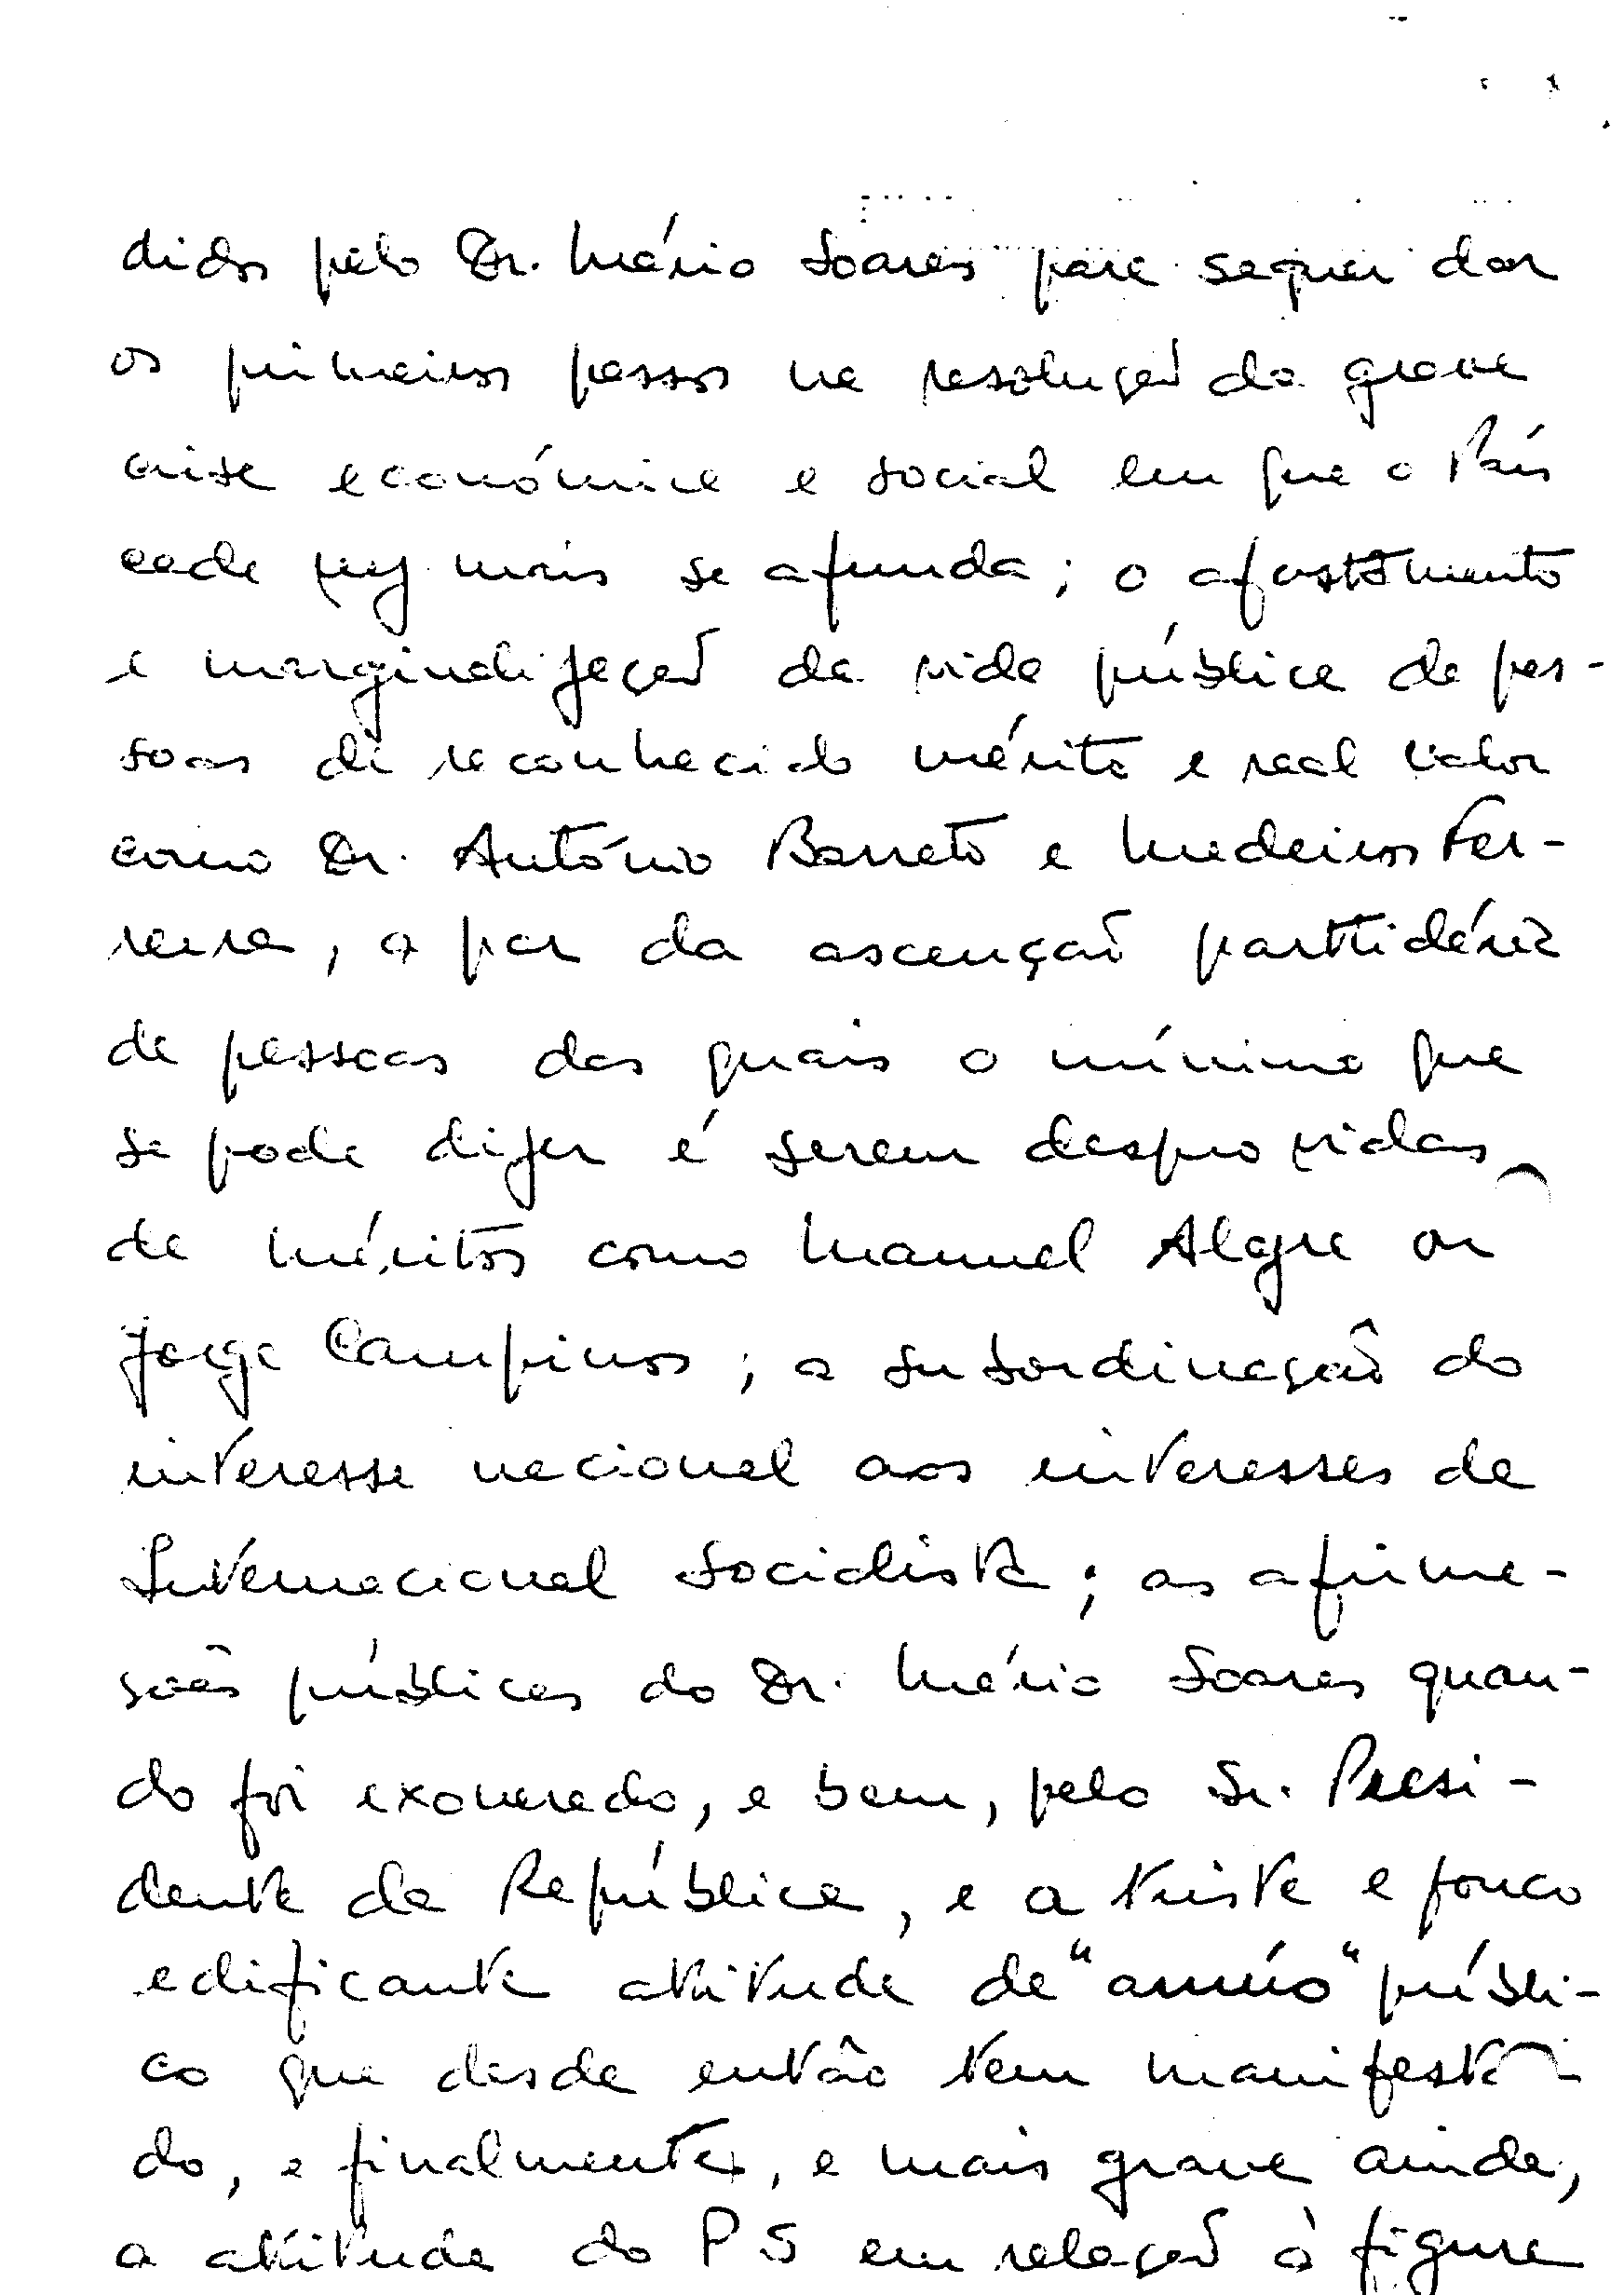 didos pelo Dr. Mário Soares para sequer dar
os primeiros passos na resolução da grave
crise económica e social em que o País
cada vez mais se afunda; o afastamento
e marginalização da vida pública de pes-
soas de reconhecido mérito e real valor
como Dr. António Barreto e Medeiros Fer-
reira, a par da ascenção partidária
de pessoas das quais o mínimo que
se pode dizer é serem desprovidas
de méritos como Manuel Alegre ou
Jorge Campinos; a subordinação do
interesse nacional aos interesses da
Internacional Socialista; as afirma-
ções públicas do Dr. Mário Soares quan-
do foi exonerado, e bem, pelo Sr. Presi-
dente da República, e a triste e pouco
edificante atitude de "amúo" públi-
co que desde então tem manifesta-
do, e finalmente, e mais grave ainda,
a atitude do PS em relação à figura